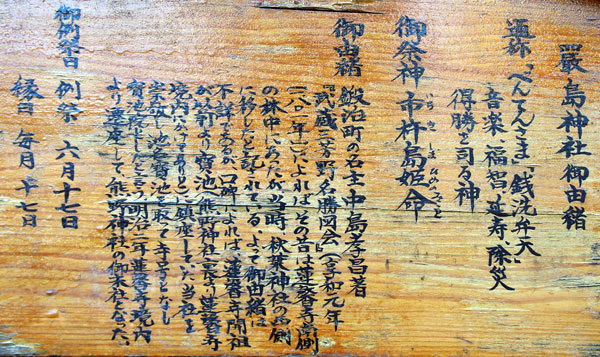 嚴島神社御由緒
通称"べんてんさま""銭洗弁天"
音楽、福智、延寿、除災、
得勝を司る神
御祭神 市杵島姫命
いちきしまひめのみこと
御由緒 鍛冶町の名主中島孝昌著
『武蔵三芳野名勝図会』(享和元年
一八〇一年)によれば、その昔は蓮馨寺裏側
の林中にあったが、当時、秋葉神社の西側
に移したと記されている。よって御由緒は
不詳であるが口碑によれば、蓮馨寺開祖
が以前より寶池(熊野神社裏より蓮馨寺
境内にかけてあり)に鎮座していた当社を
寶池を取て寺号となし
したと言う。明治二年蓮馨寺境内
より遷座して熊野神社の御末社となった。
御例祭日 例祭 六月十七日
縁日 毎月十七日